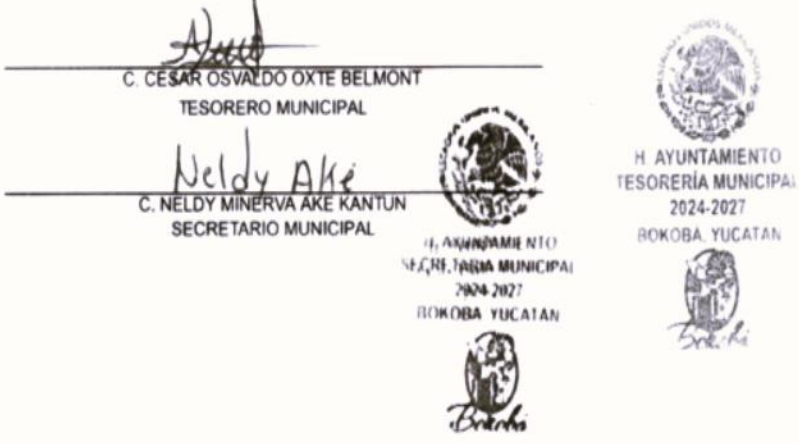 C. CESAR OSVALDO OXTE BELMONT
TESORERO MUNICIPAL
Neldy Aké
C. NELDY MINERVA AKE KANTUN
SECRETARIO MUNICIPAL
H. AYUNTAMIENTO
SECRETARIA MUNICIPAL
2024-2027
BOKOBA YUCATAN
H. AYUNTAMIENTO
TESORERÍA MUNICIPAL
2024-2027
BOKOBA, YUCATAN